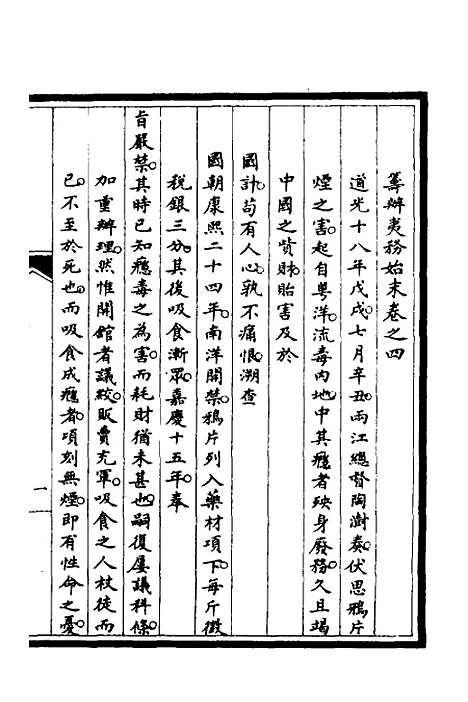 籌辦夷務始末卷之四
道光十八年戊戌七月辛丑。兩江總督陶澍奏。伏思鴉片
煙之害。起自粵洋。流毒內地。中其癮者。殃身廢務。久且竭
中國之貲財。貽害及於
國計。苟有人心。孰不痛恨。溯查
國朝康熙二十四年。南洋開禁。鴉片列入藥材項下。每斤徵
稅銀三分。其後吸食漸眾。嘉慶十五年。奉
旨嚴禁。其時已知癮毒之為害。而耗財猶未甚也。嗣復屢議科條。
加重辦理。然惟開館者議絞。販賣充軍。吸食之人。杖徒而
已。不至於死也。而吸食成癮者。項刻無煙。即有性命之憂。
一